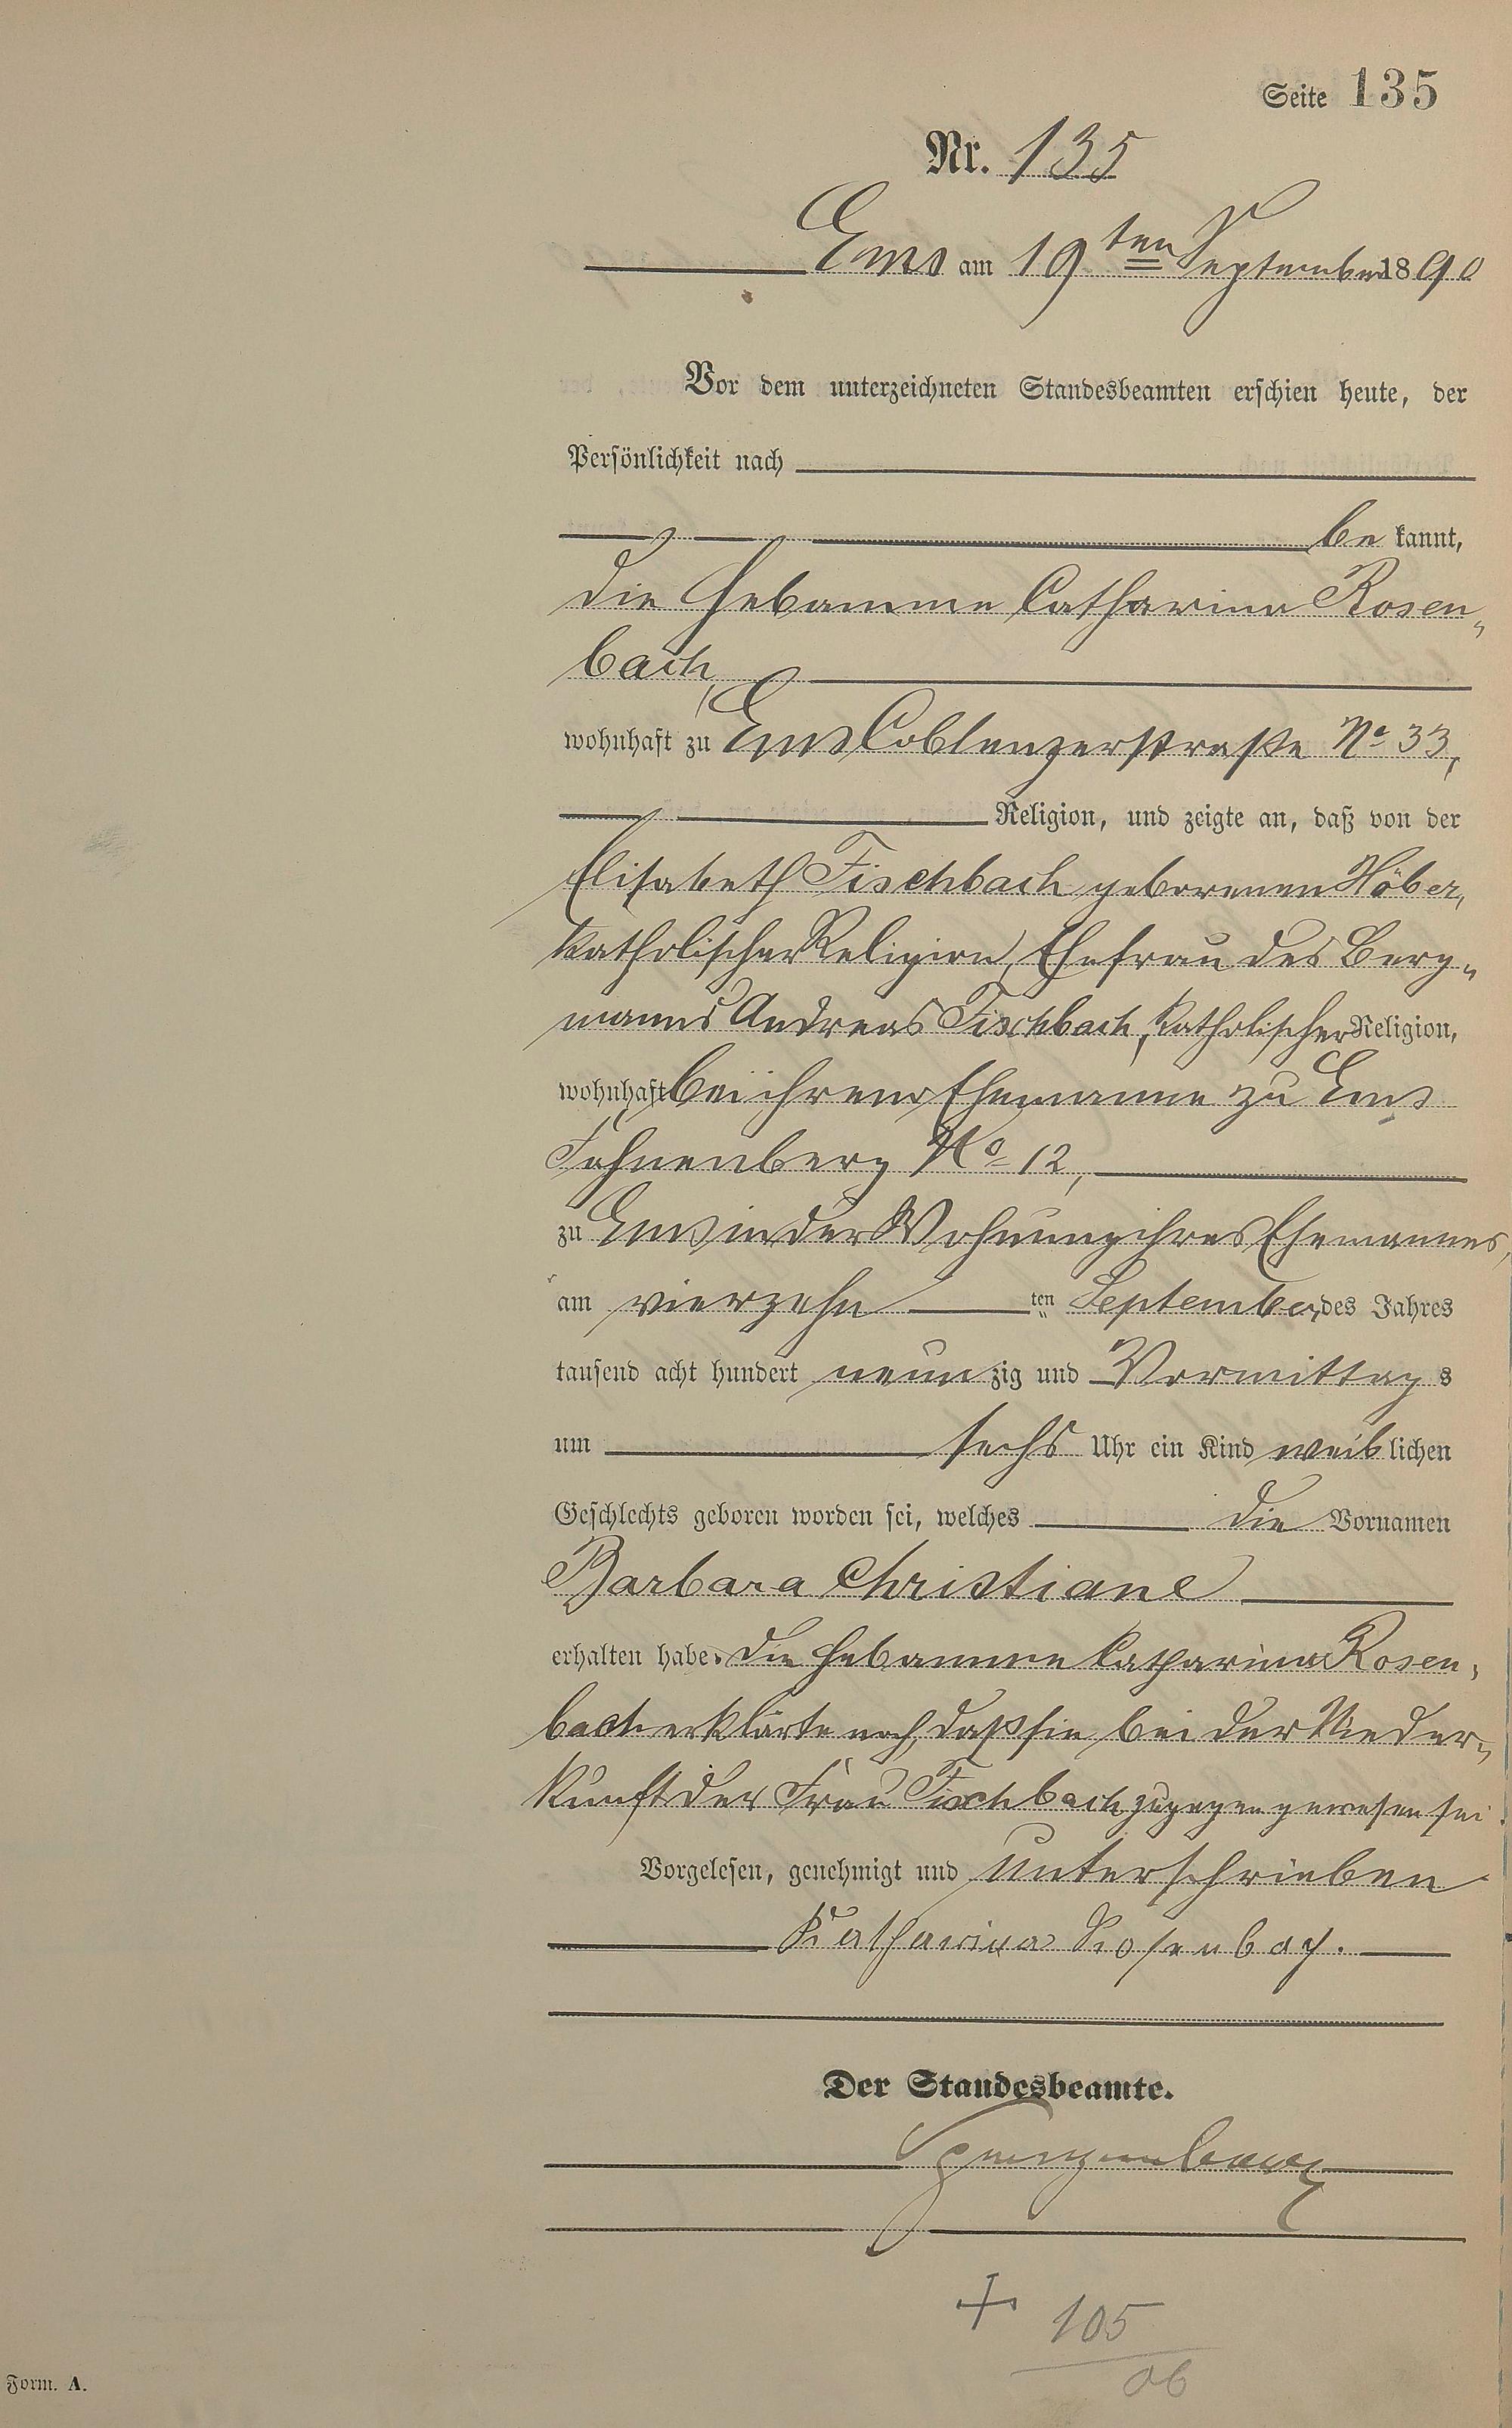 Seite 135
Nr. 135
Ems am 19ten September 1890
Vor dem unterzeichneten Standesbeamten erschien heute, der
Persönlichkeit nach
be kannt,
die Hebamme Catharina Rosen„
bach,
wohnhaft zu Ems Coblenzerstraße No 33,
Religion, und zeigte an, daß von der
Elisabeth Fischbach geborenen Höber,
katholischer Religion, Ehefrau des Berg„
manns Andreas Fischbach, katholischer Religion,
wohnhaft bei ihrem Ehemanne zu Ems
No 12,
zu Ems in der Wohnung ihres Ehemannes,
am vierzehn ten September, des Jahres
tausend acht hundert neun zig und Vormittag s
um sechs Uhr ein Kind weib lichen
Geschlechts geboren worden sei, welches die Vornamen
Barbara Christiane
erhalten habe. Die Hebamme Catharina Rosen„
bach erklärte noch, daß sie bei der Nieder„
kunft der Frau Fischbach zugegen gewesen sei.
Vorgelesen, genehmigt und unterschrieben
Katharina Rosenbach.
Der Standesbeamte.
+ 105
06
Form. A.